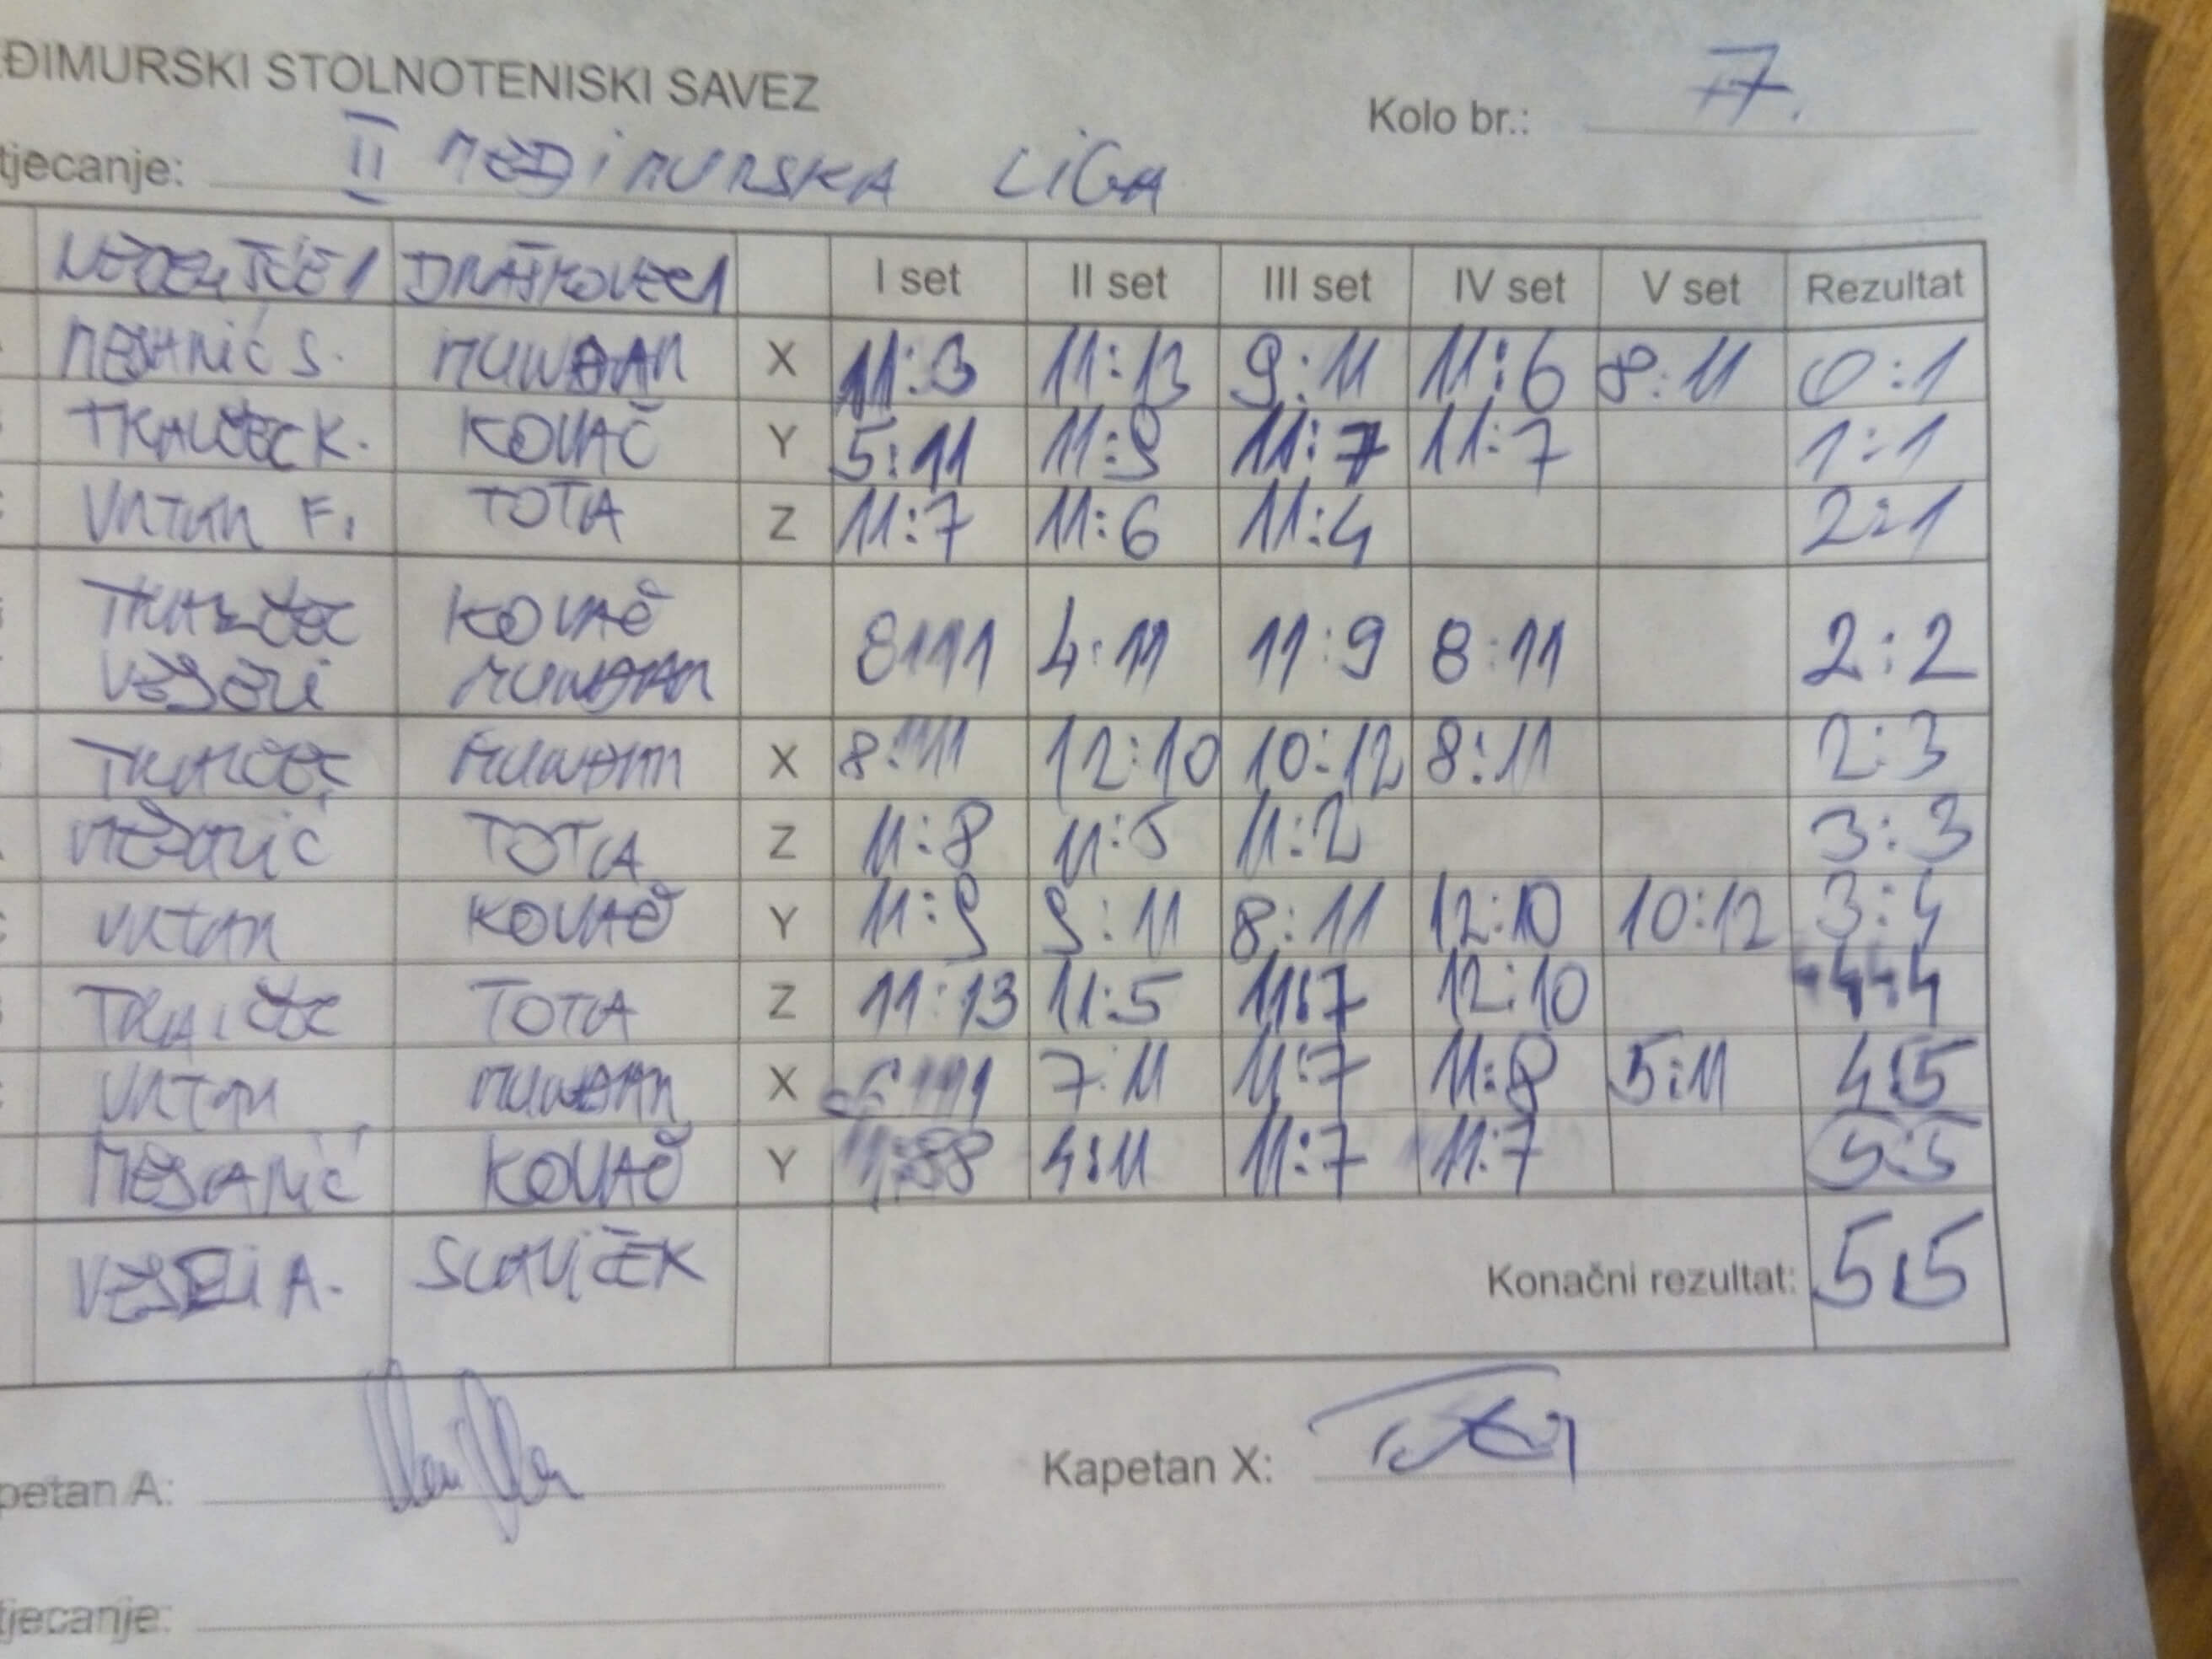 ĐIMURSKI STOLNOTENISKI SAVEZ
Kolo br.: 7.
tjecanje: II MEĐIMURSKA LIGA
NEDELIŠĆE 1 DRAŠKOVEC 1 I set II set III set IV set V set Rezultat
MESARIĆ S. MUNĐAR X 11:3 11:13 9:11 11:6 8:11 0:1
TKALČEC K. KOVAČ Y 5:11 11:9 11:7 11:7 1:1
VRTAR F. TOTA Z 11:7 11:6 11:4 2:1
TKALČEC KOVAČ
VESELI MUNĐAR 8:11 4:11 11:9 8:11 2:2
TKALČEC MUNĐAR X 8:11 12:10 10:12 8:11 2:3
MESARIĆ TOTA Z 11:8 11:5 11:2 3:3
VRTAR KOVAČ Y 11:9 9:11 8:11 12:10 10:12 3:4
TKALČEC TOTA Z 11:13 11:5 11:7 12:10 4:4
VRTAR MUNĐAR X 7:11 11:7 11:8 5:11 4:5
MESARIĆ KOVAČ Y 4:11 11:7 11:7 5:5
VESELI A. SLAVIČEK Konačni rezultat: 5:5
petan A:
Kapetan X:
tjecanje: